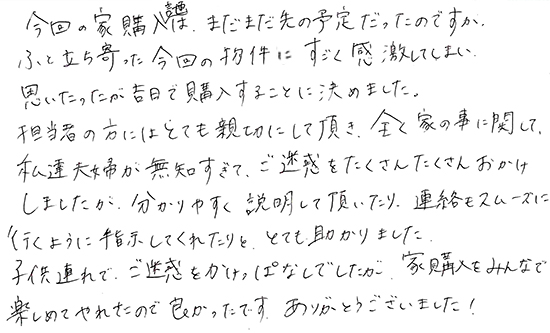 今回の家購入計画は、まだまだ先の予定だったのですが、
ふと立ち寄った今回の物件にすごく感激してしまい、
思いたったが吉日で購入することに決めました。
担当者の方にはとても親切にして頂き、全く家の事に関して、
私達夫婦が無知すぎて、ご迷惑をたくさんたくさんおかけ
しましたが、分かりやすく説明して頂いたり、連絡もスムーズに
行くように指示してくれたりと、とても助かりました。
子供連れで、ご迷惑をかけっぱなしでしたが、家購入をみんなで
楽しめてやれたので良かったです。ありがとうございました！